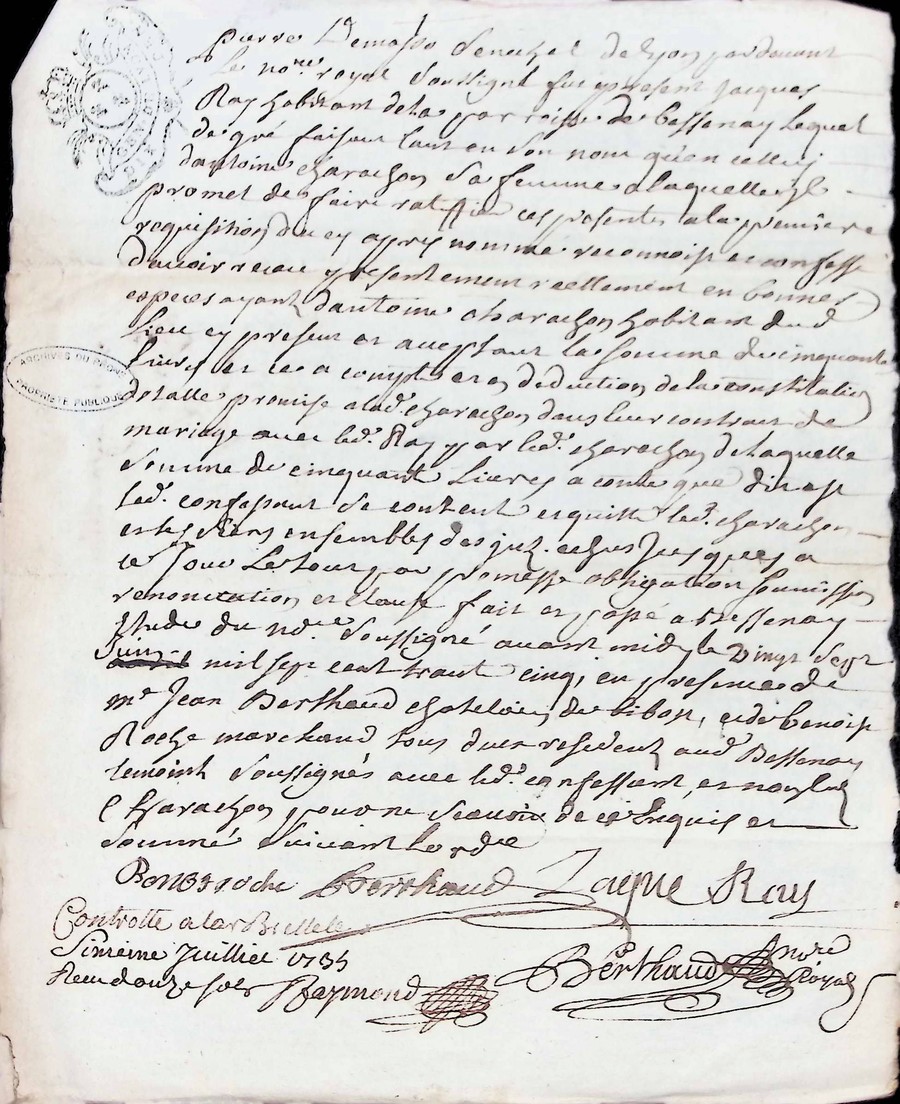 Pierre Demasso Senechal de Lyon par devant
Le nore royal Soussigné fut present Jacques
Ray habitant de la parroisse de Bessenay Lequel
de gré faisant tant en son nom qu'en celluy
dantoine charachon Sa femme a laquelle il
promet de faire ratiffier ces presentes a la premiere
requisition du cy apres nommé reconnoist et confesse
davoir receu presentement reellement en bonnes
especes ayant dantoine charachon habitant dud
Lieu cy present et acceptant la somme de cinquante
Livres et ce a compte et en deduction de la constitution
dotalle promise a lad. charachon dans leur contract de
mariage avec led. Ray par led. charachon de Laquelle
Somme de cinquant Livres a conte que dit est
led. confessant Se content et quitte led. charachon
et les siens ensembles des jusques a
ce Jour Le tout par promesse obligation Soumission
renonciation et clause fait et passé a Bessenay
Etude du nore Soussigné avant midy le Vingt Sept
Juin
mil sept cent trante cinq, en presence de
me Jean Berthaud chatelain de bibost, et de benoist
Roche marchand tous deux residents aud Bessenay
temoint Soussignés avec led. confessant, et non led
Charachon pour ne Scavoir de ce Enquis et
Sommé Suivant Lordce
Ben Broche Berthaud Jacque Ray
Controllé a larBresle le
Sixieme Juillet 1735
Receu douze sols Raymond
Berthaud nore Royal
ARCHIVES DU RHONE
PROPRIETE PUBLIQUE